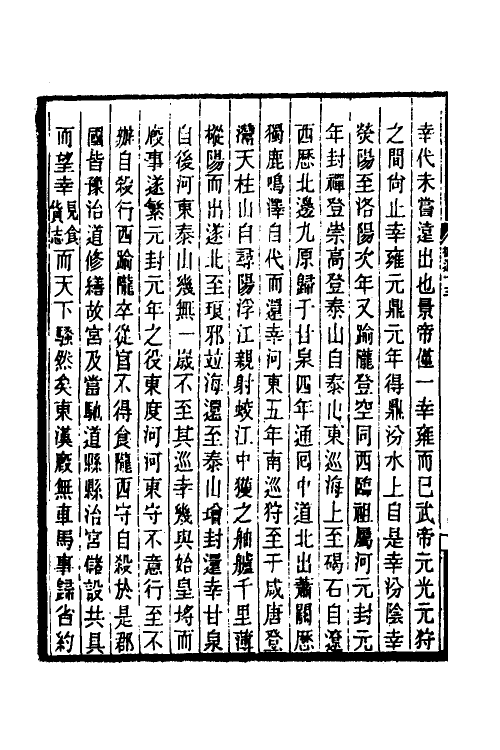 幸代未嘗遠出也景帝僅一幸雍而已武帝元光元狩
之間尙止幸雍元鼎元年得鼎汾水上自是幸汾陰幸
滎陽至洛陽次年又踰隴登空同西臨祖厲河元封元
年封禪登崇高登泰山自泰山東巡海上至碣石自遼
西歷北邊九原歸于甘泉四年通囘中道北出蕭關歷
獨鹿鳴澤自代而還幸河東五年南巡狩至于咸唐登
灊天柱山自尋陽浮江親射蛟江中獲之舳艫千里薄
樅陽而出遂北至瑯邪竝海還至泰山增封還幸甘泉
自後河東泰山幾無一歲不至其巡幸幾與始皇埓而
廄事遂繁元封元年之役東度河河東守不意行至不
辦自殺行西踰隴卒從官不得食隴西守自殺於是郡
國皆豫治道修繕故宮及當馳道縣縣治宮儲設共具
而望幸見食貨志而天下騷然矣東漢廄無車馬事歸省約